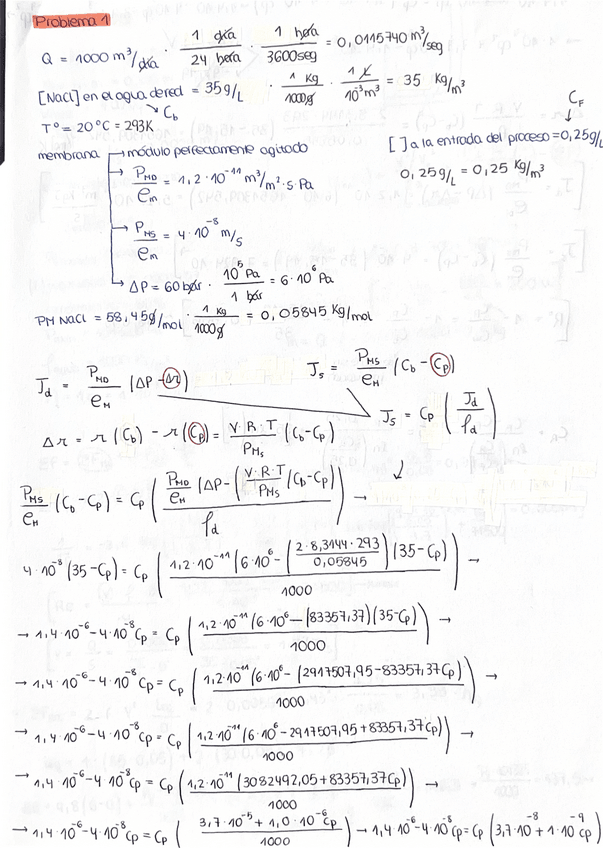 Problema 1
Q = 1000 m³/día · 1 día/24 hora · 1 hora/3600seg = 0,0115740 m³/seg
[NaCl] en el agua de red = 35 g/L · 1 Kg/1000g · 1 L/10⁻³m³ = 35 Kg/m³
↘ C_b
C_F
T° = 20°C = 293K
[ ] a la entrada del proceso = 0,25 g/L
membrana → módulo perfectamente agitado
0,25 g/L = 0,25 Kg/m³
→ P_MD/e_m = 1,2·10⁻¹¹ m³/m²·s·Pa
→ P_MS/e_m = 4·10⁻⁸ m/s
→ ΔP = 60 bar · 10⁵ Pa/1 bar = 6·10⁶ Pa
PM NaCl = 58,45 g/mol · 1 Kg/1000g = 0,05845 Kg/mol
J_d = P_MD/e_M (ΔP - Δπ)
J_s = P_MS/e_M (C_b - C_p)
J_s = C_p (J_d/ρ_d)
Δπ = π(C_b) - π(C_p) = V·R·T/PM_s (C_b - C_p)
P_MS/e_M (C_b - C_p) = C_p (P_MD/e_M (ΔP - (V·R·T/PM_s)(C_b - C_p))/ρ_d) →
4·10⁻⁸ (35 - C_p) = C_p (1,2·10⁻¹¹ (6·10⁶ - (2·8,3144·293/0,05845)(35 - C_p))/1000) →
→ 1,4·10⁻⁶ - 4·10⁻⁸ C_p = C_p (1,2·10⁻¹¹ (6·10⁶ - (83357,37)(35 - C_p))/1000) →
→ 1,4·10⁻⁶ - 4·10⁻⁸ C_p = C_p (1,2·10⁻¹¹ (6·10⁶ - (2917507,95 - 83357,37 C_p))/1000) →
→ 1,4·10⁻⁶ - 4·10⁻⁸ C_p = C_p (1,2·10⁻¹¹ (6·10⁶ - 2917507,95 + 83357,37 C_p)/1000) →
→ 1,4·10⁻⁶ - 4·10⁻⁸ C_p = C_p (1,2·10⁻¹¹ (3082492,05 + 83357,37 C_p)/1000) →
→ 1,4·10⁻⁶ - 4·10⁻⁸ C_p = C_p (3,7·10⁻⁵ + 1,0·10⁻⁶ C_p/1000) → 1,4·10⁻⁶ - 4·10⁻⁸ C_p = C_p (3,7·10⁻⁸ + 1·10⁻⁹ C_p)